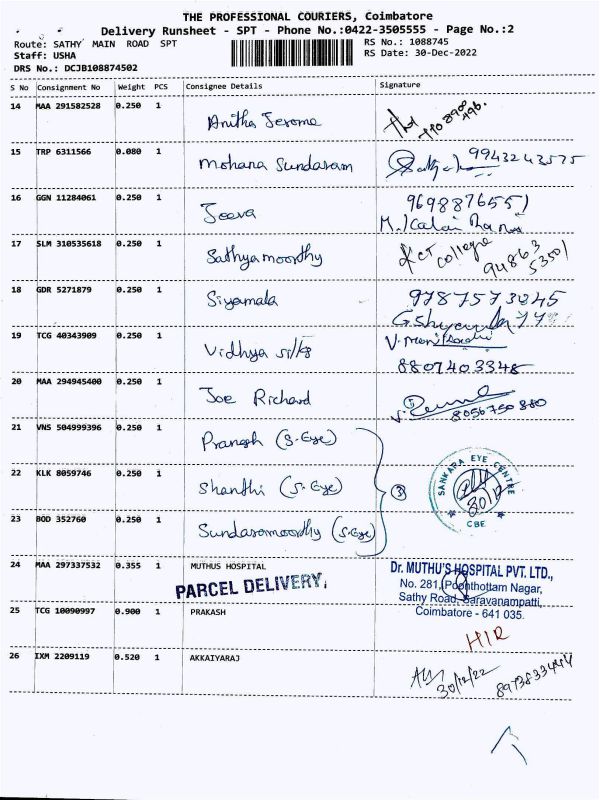 THE PROFESSIONAL COURIERS, Coimbatore
Delivery Runsheet - SPT - Phone No.:0422-3505555 - Page No.:2
Route: SATHY MAIN ROAD SPT
RS No.: 1088745
Staff: USHA
RS Date: 30-Dec-2022
DRS No.: DCJB108874502
S No Consignment No Weight PCS Consignee Details Signature
14 MAA 291582528 0.250 1 Anitha Jerome
15 TRP 6311566 0.080 1 Mohana Sundaram 9943243575
16 GGN 11284061 0.250 1 Jeeva 9698876551
17 SLM 310535618 0.250 1 Sathyamoorthy KCT college
94863
53501
18 GDR 5271879 0.250 1 Siyamala 9787573045
19 TCG 40343909 0.250 1 Vidhya silks
8807403348
20 MAA 294945400 0.250 1 Joe Richard
8056750880
21 VNS 504999396 0.250 1 Pranesh (S-Eye)
22 KLK 8059746 0.250 1 Shanthi (S-Eye)
3
SANKARA EYE CENTRE
30/12
CBE
23 BOD 352760 0.250 1 Sundaramoorthy (S-Eye)
24 MAA 297337532 0.355 1 MUTHUS HOSPITAL
PARCEL DELIVERY.
Dr. MUTHU'S HOSPITAL PVT. LTD.,
No. 281, Poonthottam Nagar,
Sathy Road, Saravanampatti,
Coimbatore - 641 035.
25 TCG 10090997 0.900 1 PRAKASH
26 IXM 2209119 0.520 1 AKKAIYARAJ
30/12/22